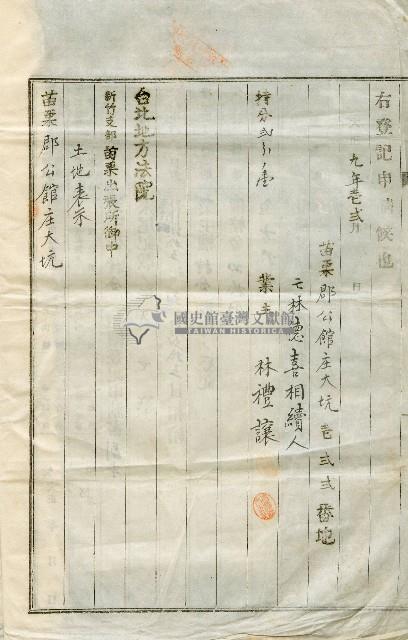 右登記申請候也
九年壱弐月 日
苗栗郡公館庄大坑壱弐弐番地
亡林恩喜相續人
業主 林禮讓
持分弐分ノ壱
台北地方法院
新竹支部苗栗出張所御中
土地表示
苗栗郡公館庄大坑
國史館臺灣文獻館
TAIWAN HISTORICA